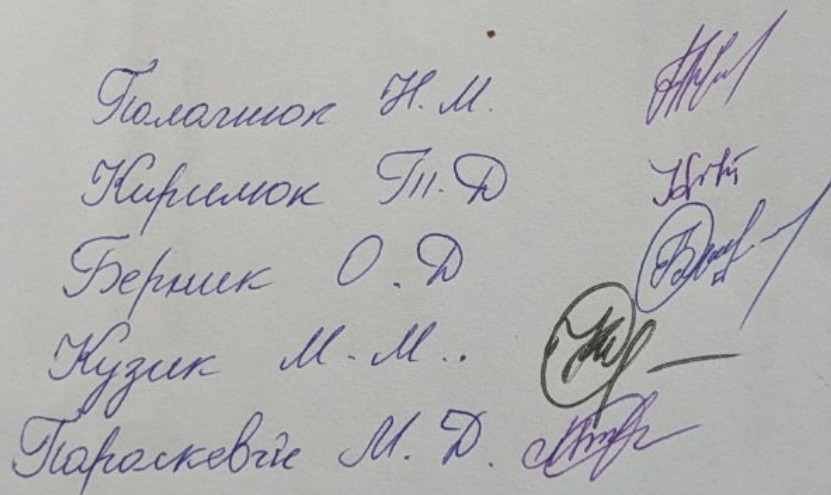 Палагнюк Н.М.
Кирилюк Т.Д
Берник О.Д
Кузик М.М..
Параскевіч М.Д.